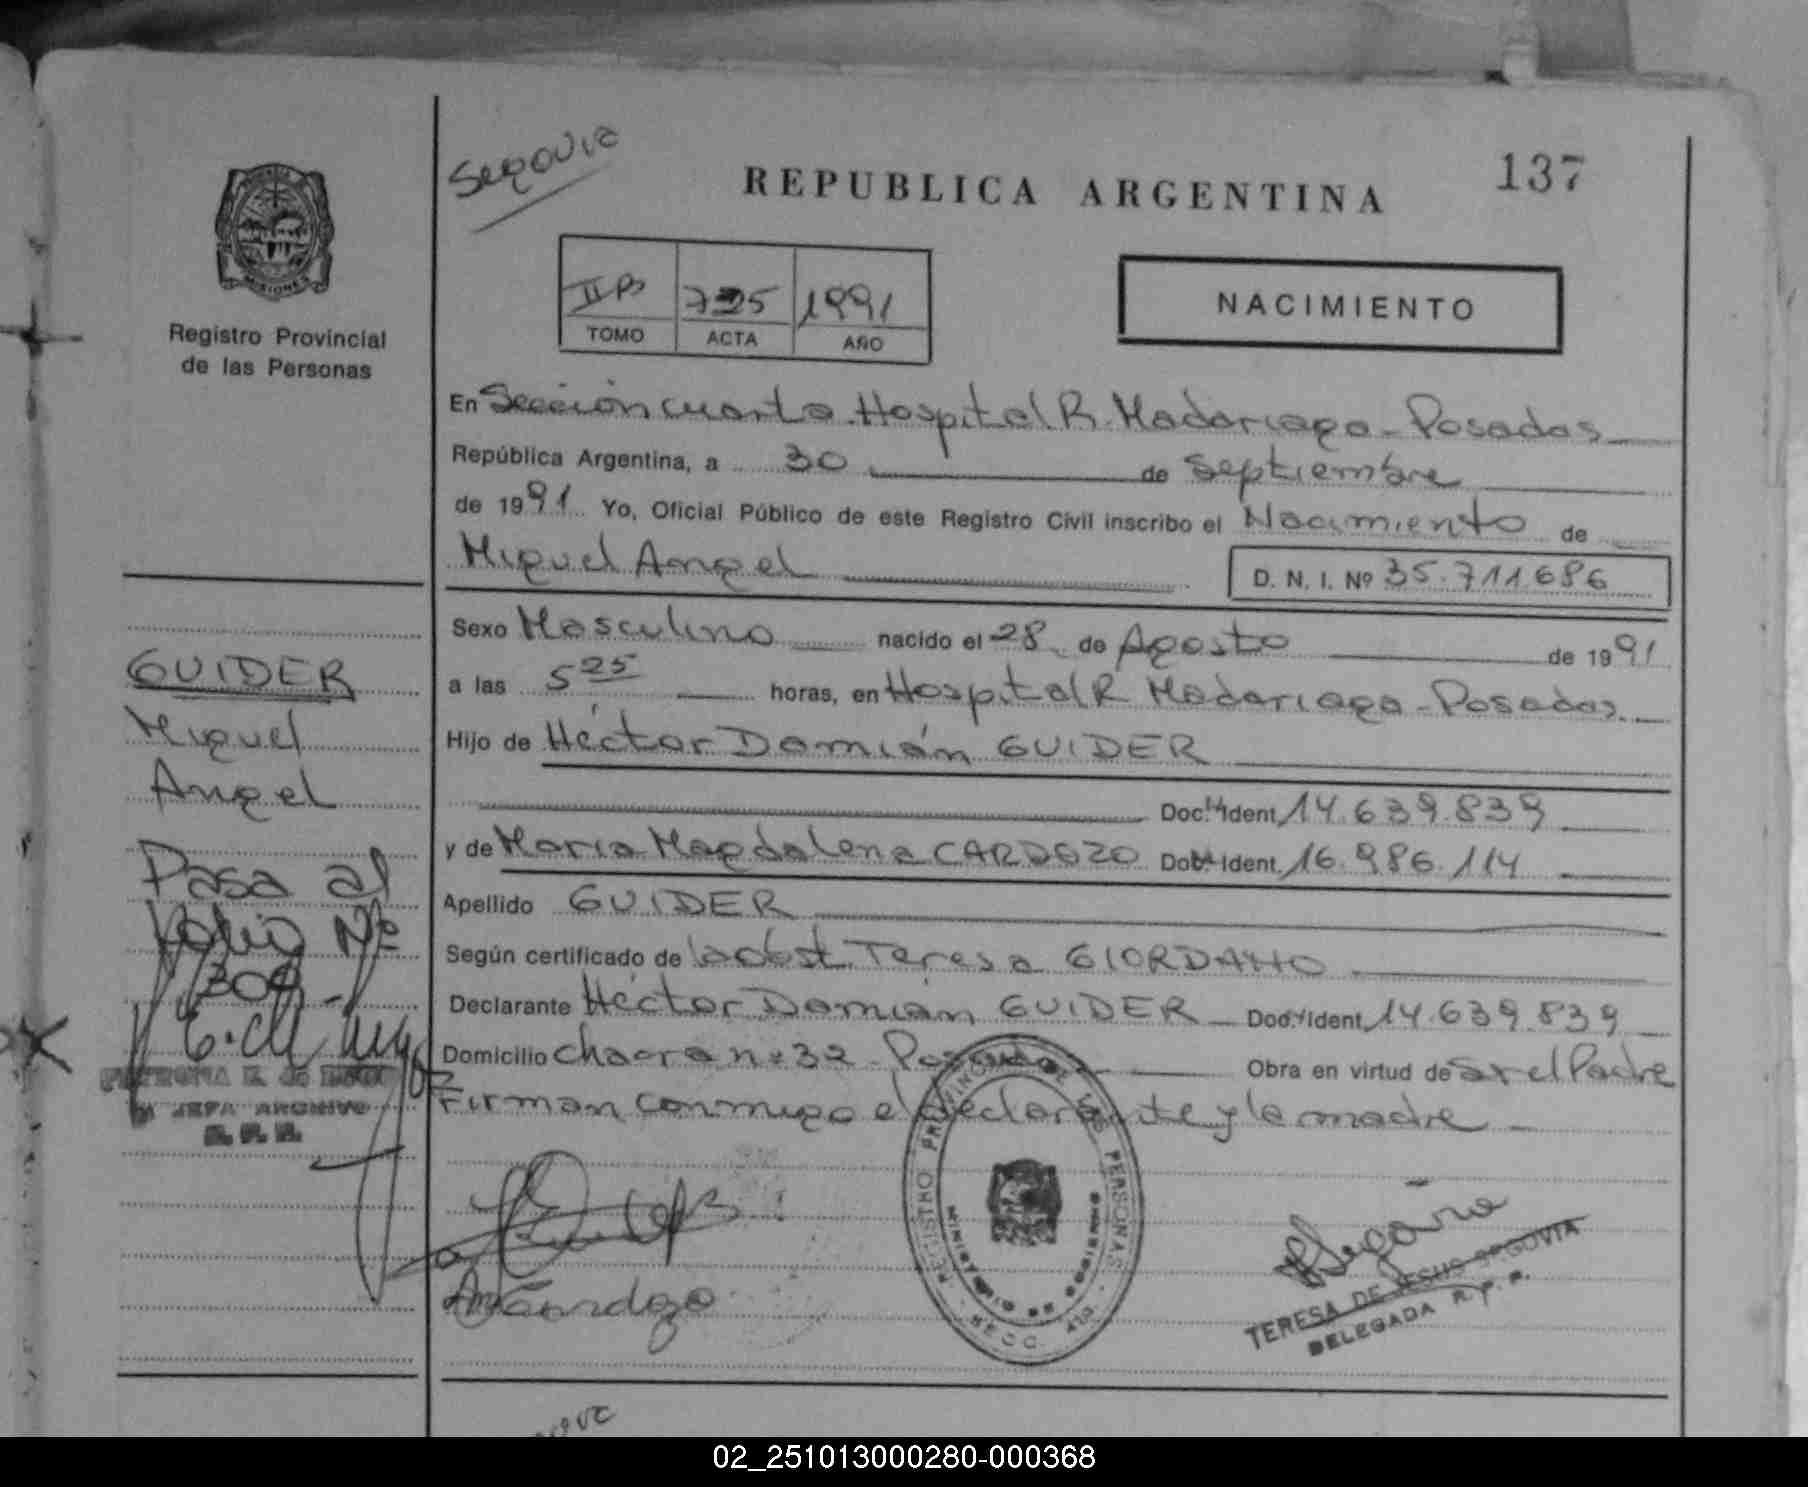 Segovia
REPUBLICA ARGENTINA
137
MISIONES
Registro Provincial
de las Personas
II B 725 1991
TOMO ACTA AÑO
NACIMIENTO
En Sección cuarta. Hospital R. Madariaga - Posadas
República Argentina, a 30 de Septiembre
de 1991 Yo, Oficial Público de este Registro Civil inscribo el Nacimiento de
Miguel Angel
D. N. I. Nº 35.711.686
Sexo Masculino nacido el 28 de Agosto de 1991
a las 5 25 horas, en Hospital R Madariaga - Posadas.
Hijo de Héctor Damián GUIDER
Doc. Ident. 14.639.839
y de María Magdalena CARDOZO Doc. Ident. 16.986.114
Apellido GUIDER
Según certificado de la obst. Teresa GIORDANO
Declarante Héctor Damián GUIDER Doc. Ident. 14.639.839
Domicilio Chacra nº 32 - Posadas Obra en virtud de ser el Padre
Firman conmigo el declarante y la madre
GUIDER
Miguel
Angel
Pasa al
folio Nº
304
JEFA ARCHIVO
R. P. P.
REGISTRO PROVINCIAL DE LAS PERSONAS
MINISTERIO DE GOBIERNO
SECC. 4ta.
Cardozo
Segovia
TERESA DE JESUS SEGOVIA
DELEGADA R. P. P.
02_251013000280-000368